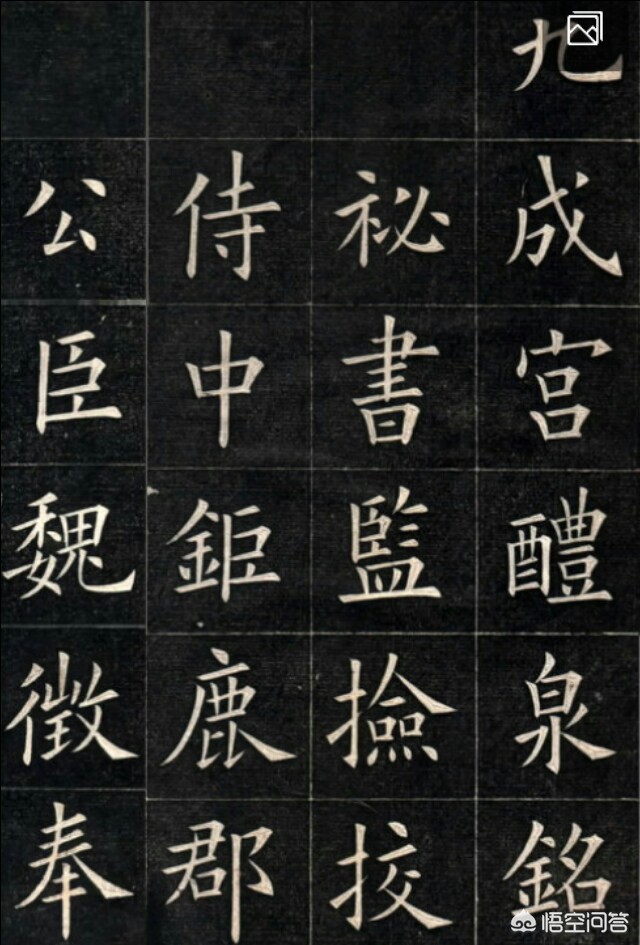 九成宮醴泉銘
祕書監撿挍
侍中鉅鹿郡
公臣魏徵奉
悟空问答